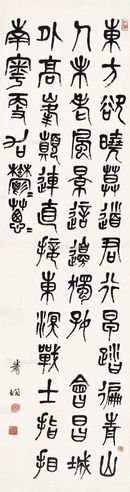 東方欲曉莫道君行早踏遍青山
人未老風景這邊獨好會昌城
外高峯顛連直接東溟戰士指看
南粵更加鬱〻蔥〻
蕭嫻